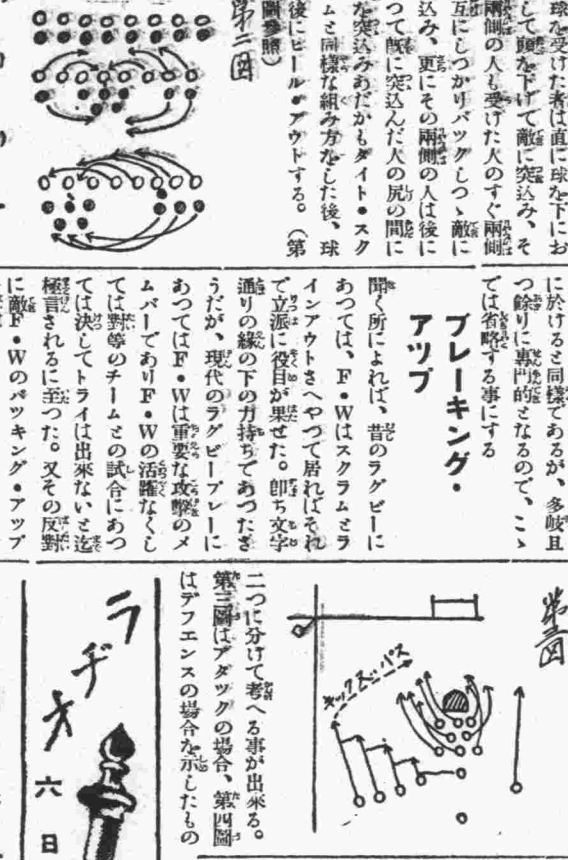 球を受けた者は直に球を下にお
して頭を下げて敵に突込み、そ
兩側の人も受けた人のすぐ兩側
互にしつかりバックしつゝ敵に
込み、更にその兩側の人は後に
つて既に突込んだ人の尻の間に
を突込みあだかもタイト・スク
ムと同様な組み方をした後、球
後にヒール・アウトする。（第
圖參照）
第二図
に於けると同様であるが、多岐且
つ餘りに專門的となるので、こゝ
では省略する事にする
ブレーキング・
アップ
聞く所によれば、昔のラグビーに
あつては、F・Wはスクラムとラ
インアウトさへやつて居ればそれ
で立派に役目が果せた。卽ち文字
通りの緣の下の力持ちであつたさ
うだが、現代のラグビープレーに
あつてはF・Wは重要な攻擊のメ
ムバーでありF・Wの活躍なくし
ては對等のチームとの試合にあつ
ては決してトライは出來ないと迄
極言されるに至つた。又その反對
に敵F・Wのバッキング・アップ
第三図
二つに分けて考へる事が出來る。
第三圖はアタックの場合、第四圖
はデフエンスの場合を示したもの
ラヂオ
六日